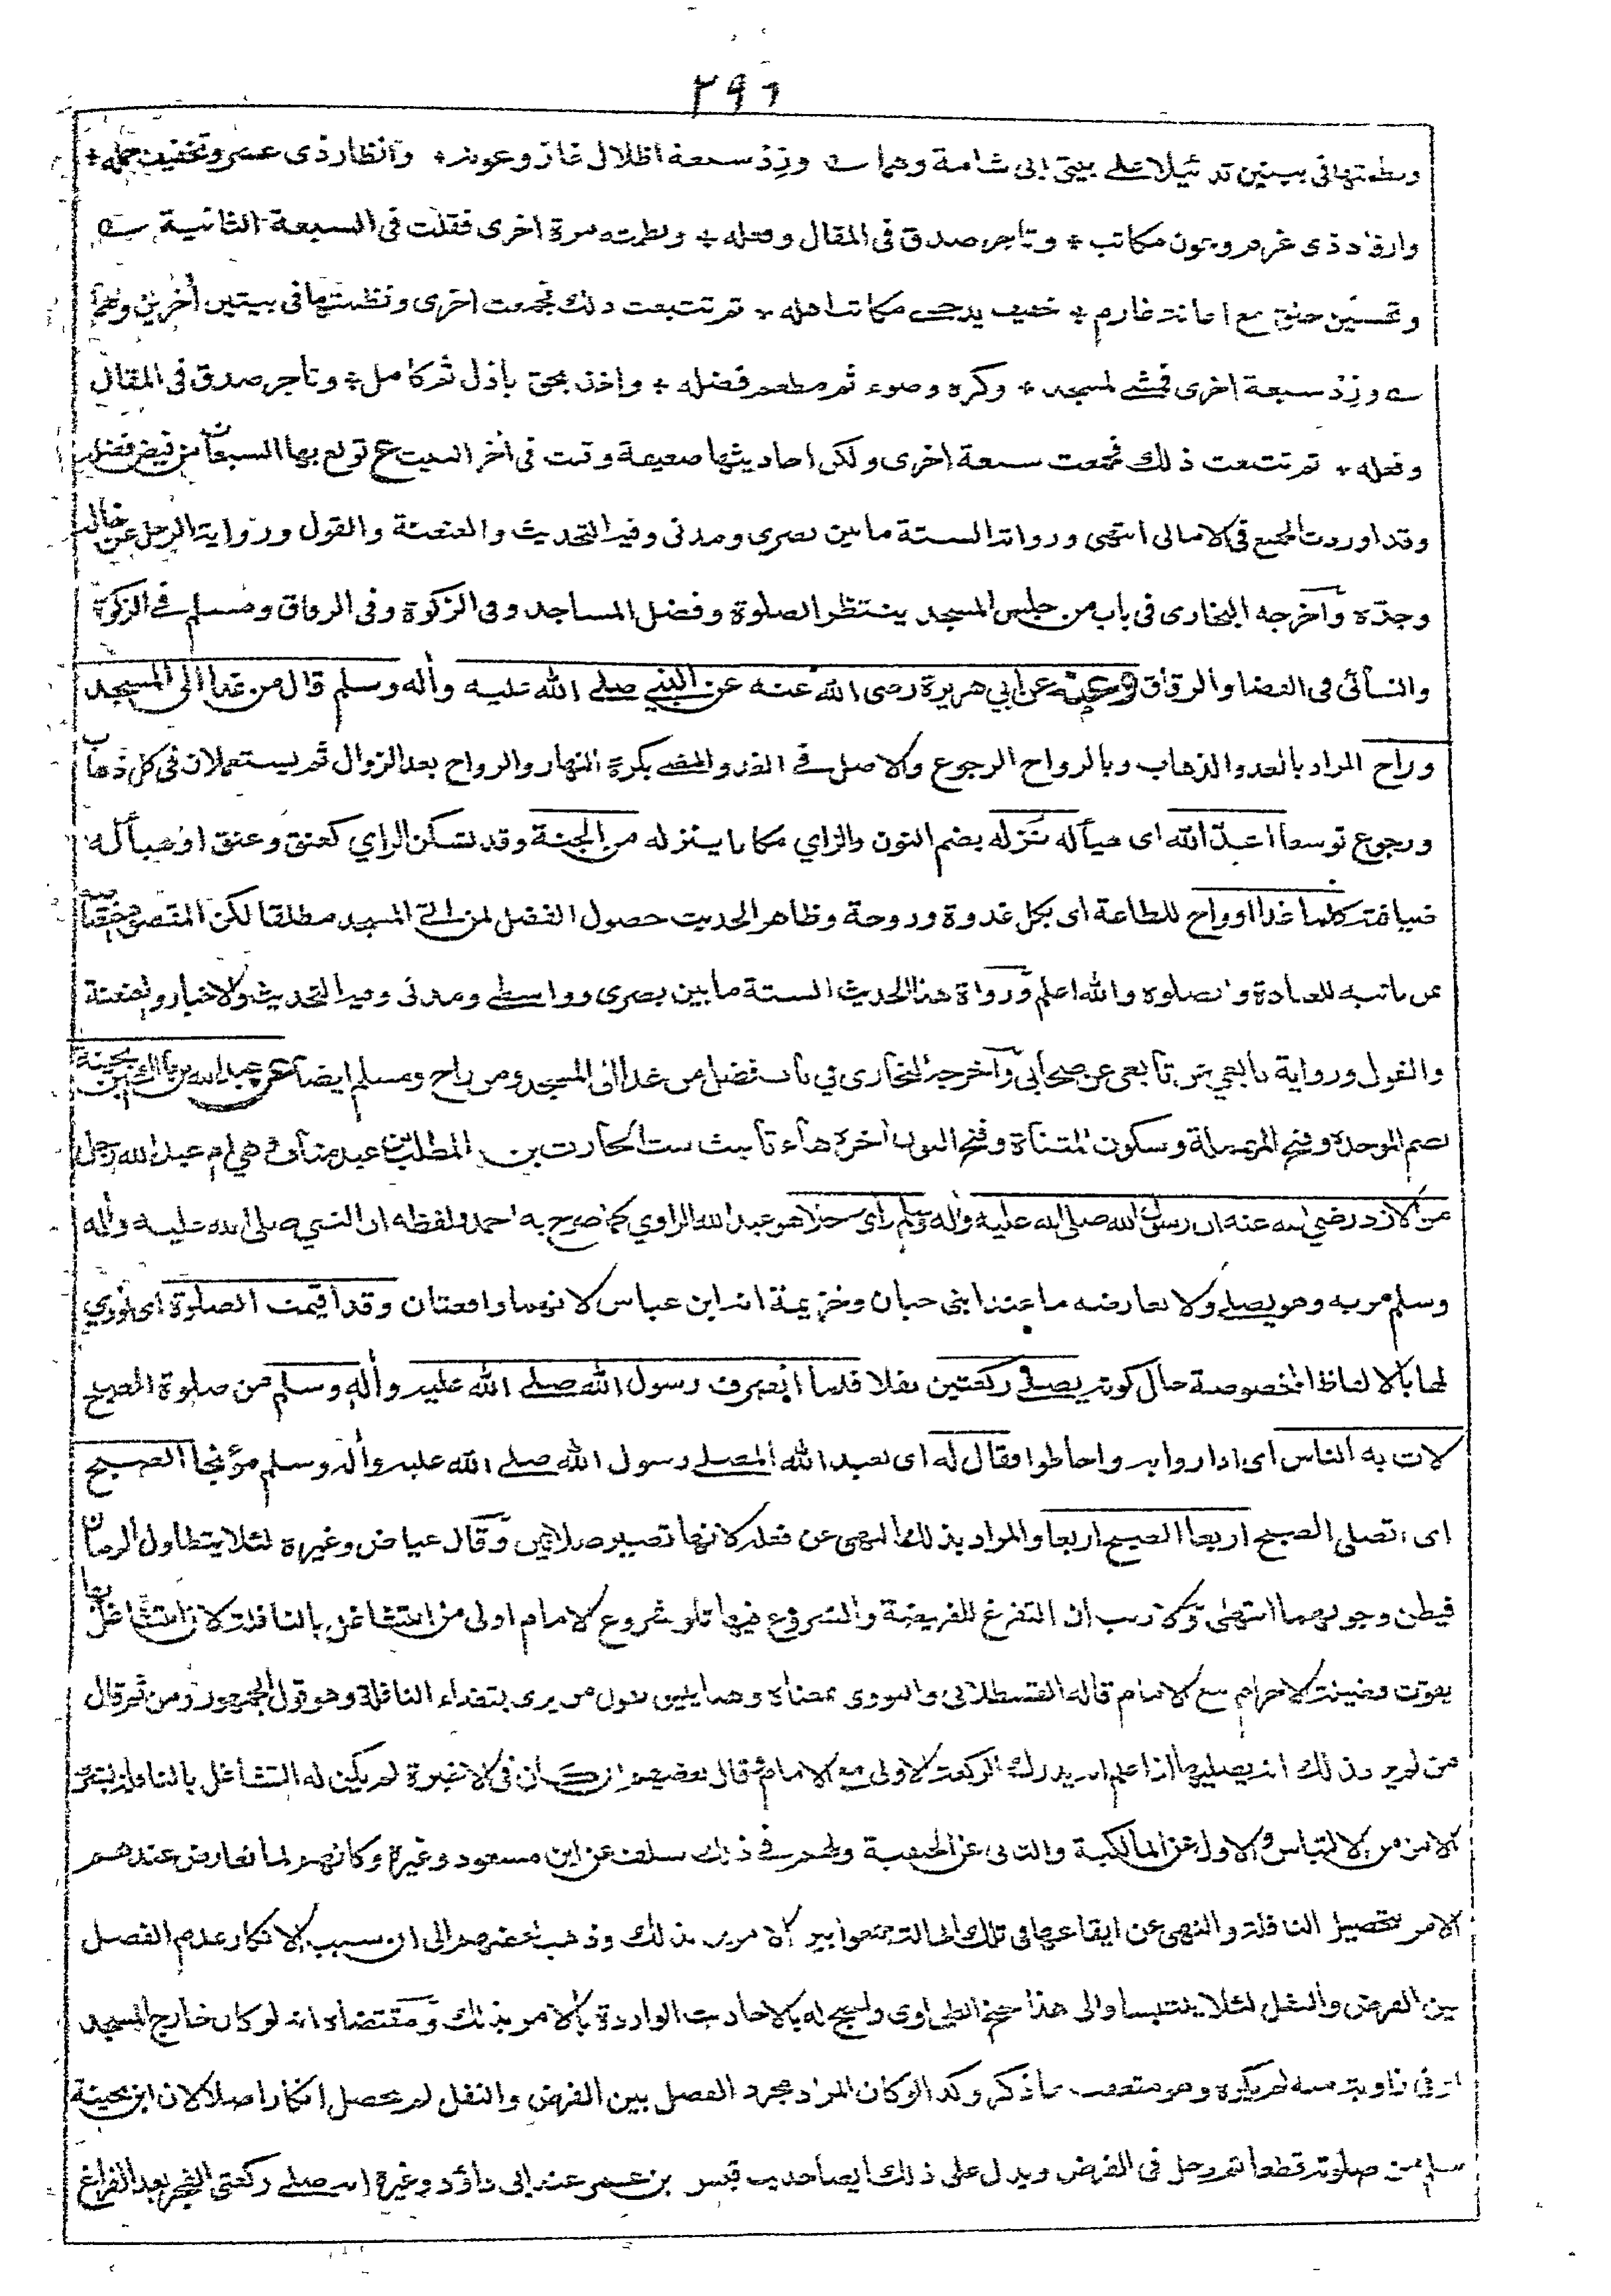 ٢٩٦
ونظمتها فى بيتين تذييلا على بيتى ابى شامة وهما ے وزد سبعة اظلال غاز وعونه + وانظار ذى عسر وتخفيف حمله +
وارفاد ذى غرم وعون مكاتب + وتاجر صدق فى المقال وفعله + ونظمته مرة اخرى فقلت فى السبعة الثانية ے
وتحسين خلق مع اعانة غارم + خفيف يد حتى مكاتب اهله + ثم تتبعت ذلك فجمعت اخرى ونظمتها فى بيتين أخرين وهما
ے وزد سبعة اخرى فمشى لمسجد + وكره وضوء ثم مطعم فضله + واخذ بحق باذل ثم كامل + وتاجر صدق فى المقال
وفعله + ثم تتبعت ذلك فجمعت سبعة اخرى ولكن احاديثها ضعيفة وقلت فى أخر البيت ع تولع بها السبعات من فيض فضله
وقد اوردت الجميع فى الامالى انتهى ورواته الستة ما بين بصرى ومدنى وفيه التحديث والعنعنة والقول ورواية الرجل عن خاله
وجده وأخرجه البخارى فى باب من جلس المسجد ينتظر الصلوة وفضل المساجد وفى الزكوة وفى الرقاق ومسلم فى الزكوة
والنسائى فى القضا والرقاق وعنه عن ابي هريرة رضى الله عنه عن النبي صلے الله عليه وأله وسلم قال من غدا الى المسجد
وراح المراد بالغدو الذهاب وبالرواح الرجوع والاصل فى الغدو المضى بكرة النهار والرواح بعد الزوال ثم يستعملان فى كل ذهاب
ورجوع توسعا اعد الله اى هيأ له نزله بضم النون والزاي مكانا ينزله من الجنة وقد تسكن الزاي كعنق وعنق او هيأ له
ضيافته كلما غدا او راح للطاعة اى بكل غدوة وروحة وظاهر الحديث حصول الفضل لمن اتى المسجد مطلقا لكن المقصود اختصاصه
بمن ياتيه للعبادة والصلوة والله اعلم ورواة هذا الحديث الستة ما بين بصرى وواسطى ومدنى وفيه التحديث والاخبار والعنعنة
والقول ورواية تابعي عن تابعي عن صحابى وأخرجه البخارى في باب فضل من غدا الى المسجد ومن راح ومسلم ايضا عن عبد الله بن مالك بن بحينة
بضم الموحدة وفتح المهملة وسكون المثناة وفتح النون أخره هاء تأنيث بنت الحارث بن المطلب بن عبد مناف وهي ام عبد الله رجل
من الازد رضي الله عنه ان رسول الله صلى الله عليه وأله وسلم رأى رجلا هو عبد الله الراوي كما صرح به احمد ولفظه ان النبي صلى الله عليه وأله
وسلم مر به وهو يصلے ولا يعارضه ما عند ابنى حبان وخزيمة انه ابن عباس لانهما واقعتان وقد أقيمت الصلوة اى نودي
لها بالالفاظ المخصوصة حال كونه يصلى ركعتين نفلا فلما انصرف رسول الله صلے الله عليه وأله وسلم من صلوة الصبح
لاث به الناس اى اداروا به واحاطوا فقال له اى لعبد الله المصلى رسول الله صلے الله عليه وأله وسلم موبخا الصبح
اى اتصلى الصبح اربعا الصبح اربعا والمراد بذلك النهى عن فعله لانها تصير صلاتين وقال عياض وغيره لئلا يتطاول الزمان
فيظن وجوبهما انتهى ولا ريب ان التفرغ للفريضة والشروع فيها تلو شروع الامام اولى من التشاغل بالنافلة لان التشاغل بها
يفوت فضيلة الاحرام مع الامام قاله القسطلانى والنووى بمعناه وهذا يليق بقول من يرى بقضاء النافلة وهو قول الجمهور ومن ثم قال
من لم ير ذلك انه يصليها اذا علم انه يدرك الركعة الاولى مع الامام وقال بعضهم ان كان فى الاخيرة لم يكن له التشاغل بالنافلة بشرط
الامن من الالتباس والاول عن المالكية والثانى عن الحنفية ولهم فى ذلك سلف عن ابن مسعود وغيره وكانهم لما تعارض عندهم
الامر بتحصيل النافلة والنهى عن ايقاعها فى تلك الحالة جمعوا بين الامرين بذلك وذهب بعضهم الى ان سبب الانكار عدم الفصل
بين الفرض والنفل لئلا يلتبسا والى هذا جنح الطحاوى واحتج له بالاحاديث الواردة بالامر بذلك ومقتضاه انه لو كان خارج المسجد
او فى زاوية منه لم يكره وهو متعقب بما ذكر ولذا لو كان المراد مجرد الفصل بين الفرض والنفل لم يحصل انكار اصلا لان ابن بحينة
سلم من صلوته قطعا ثم دخل فى الفرض ويدل على ذلك ايضا حديث قيس بن عمر عند ابى داؤد وغيره انه صلے ركعتى الفجر بعد الفراغ